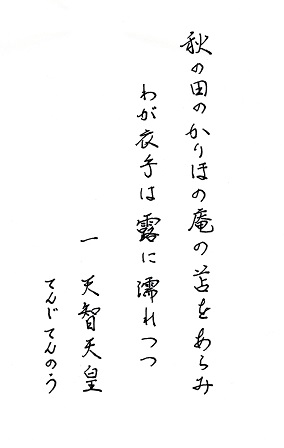 秋の田のかりほの庵の苫をあらみ
わが衣手は露に濡れつつ
一 天智天皇
てんじてんのう